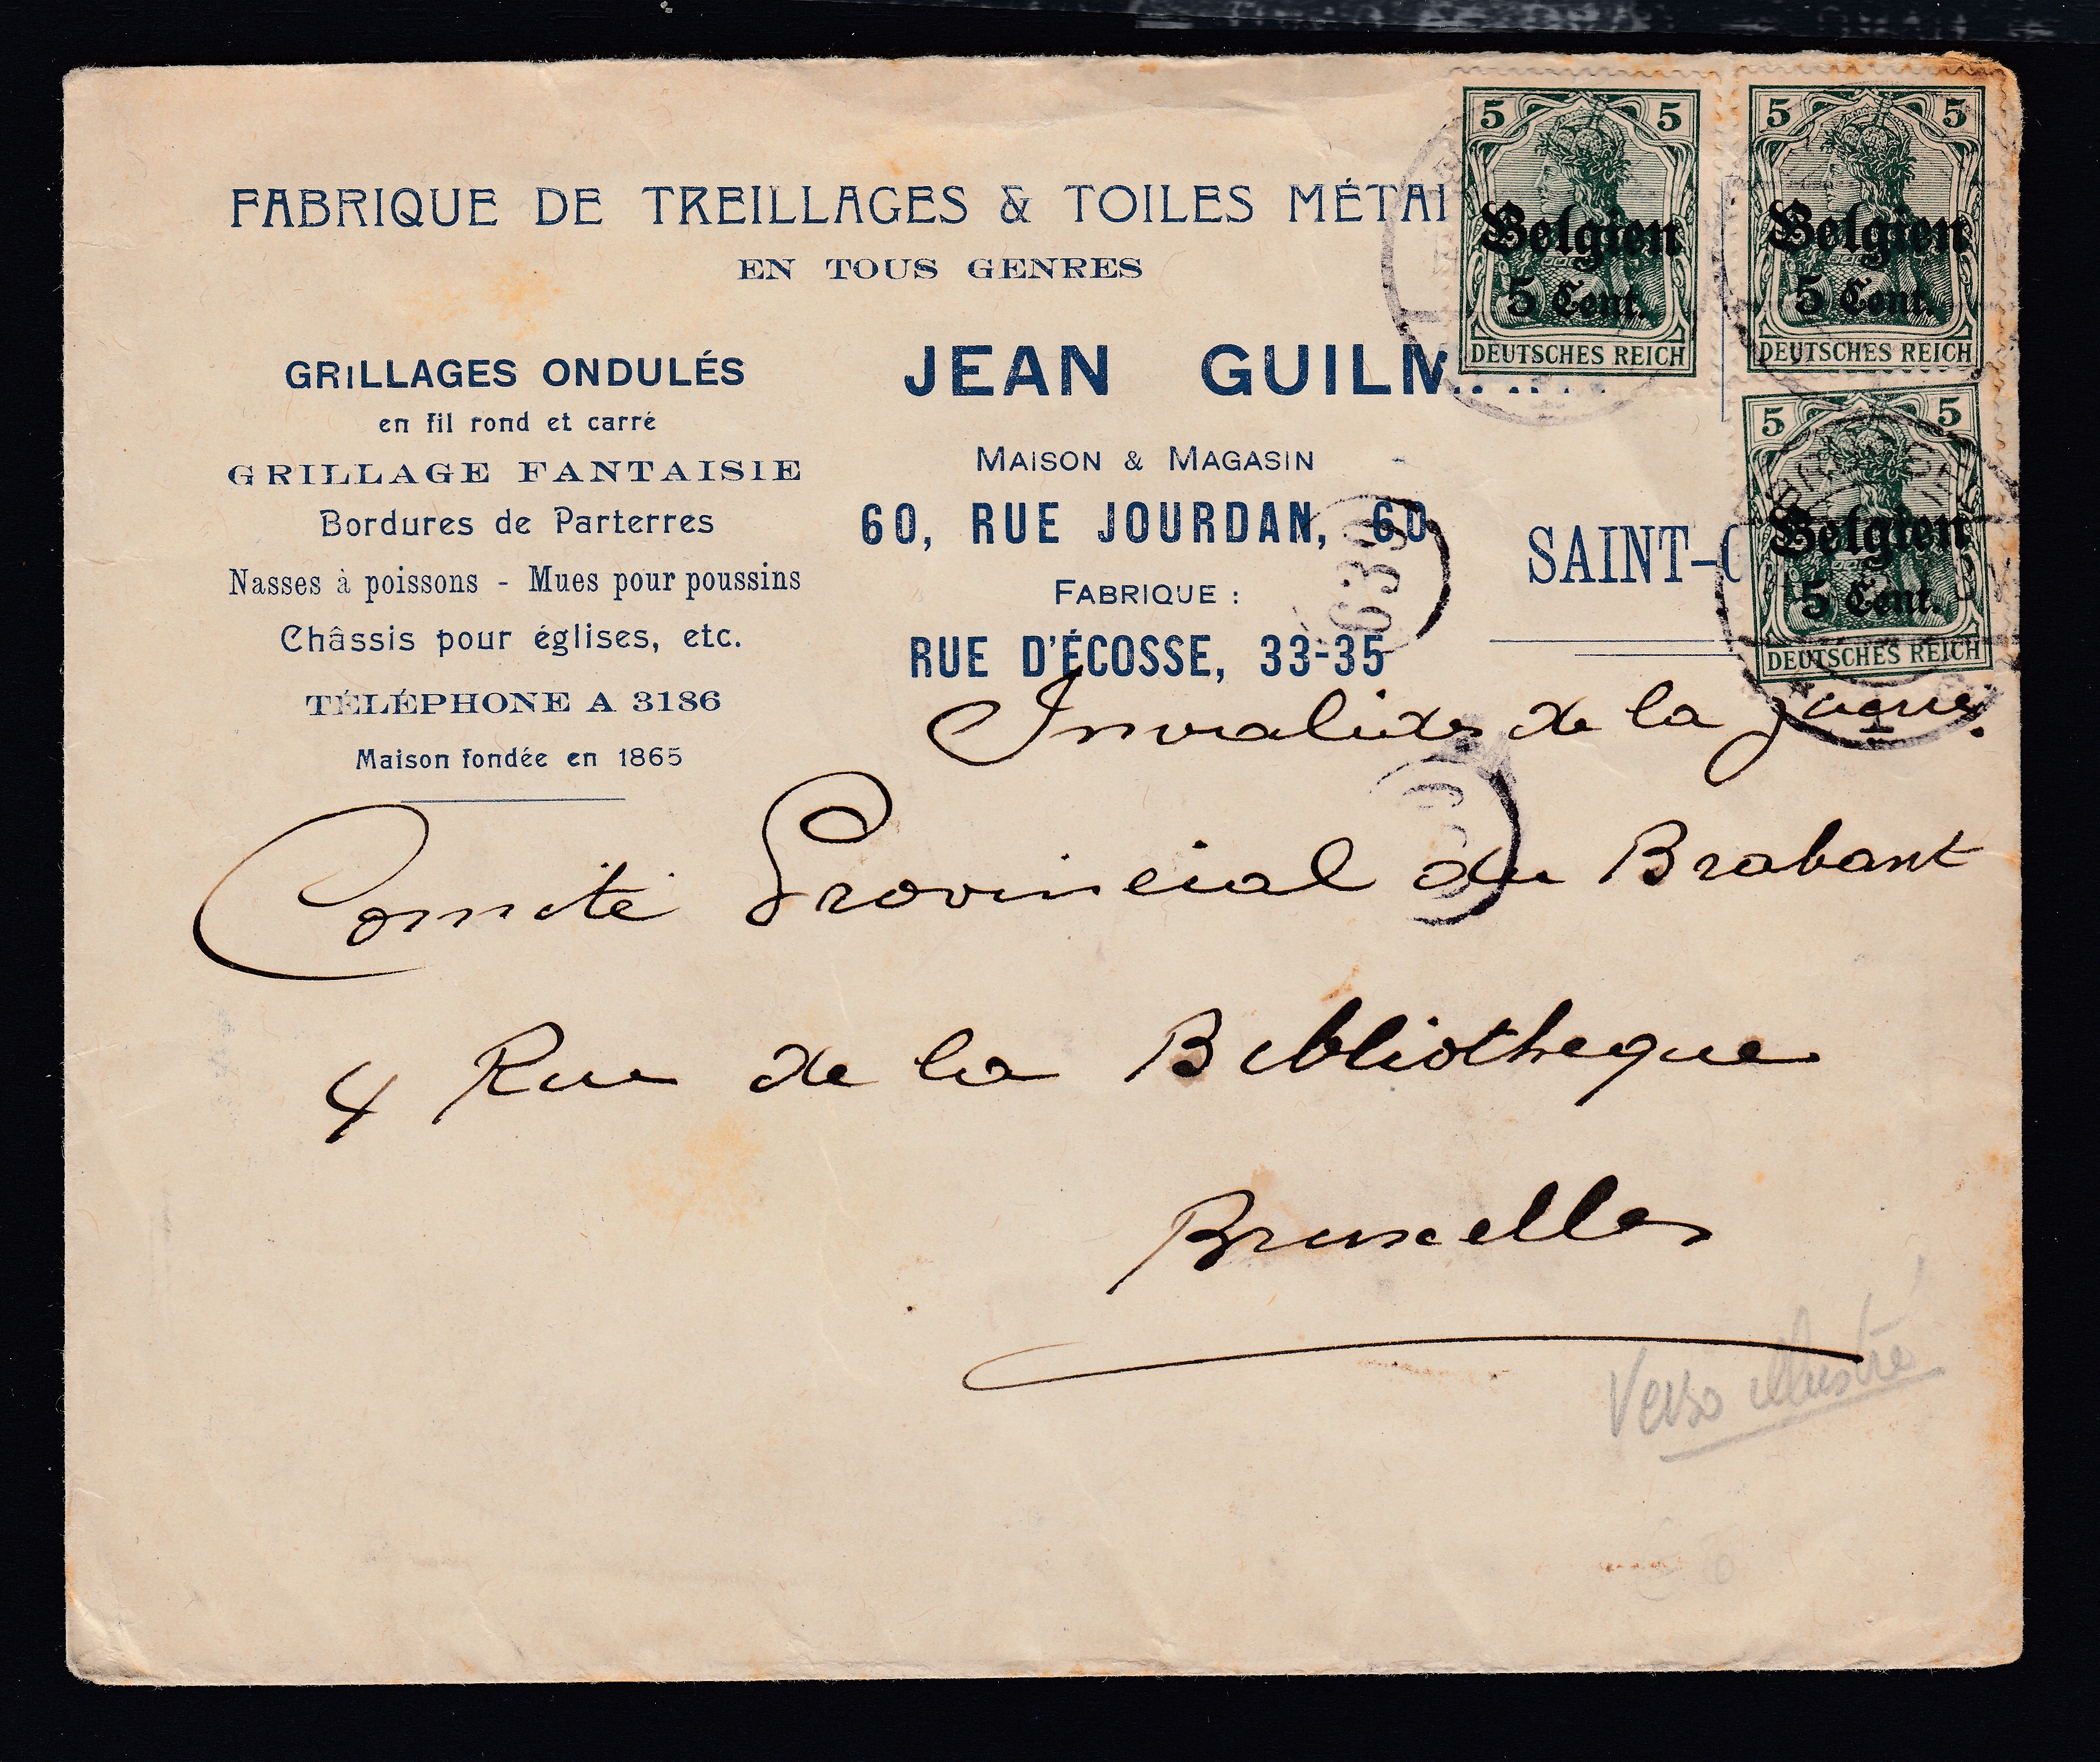 FABRIQUE DE TREILLAGES & TOILES MÉTAL
EN TOUS GENRES
GRILLAGES ONDULÉS
en fil rond et carré
GRILLAGE FANTAISIE
Bordures de Parterres
Nasses à poissons - Mues pour poussins
Châssis pour églises, etc.
TÉLÉPHONE A 3186
Maison fondée en 1865
JEAN GUILM
MAISON & MAGASIN
60, RUE JOURDAN, 60
FABRIQUE :
RUE D'ÉCOSSE, 33-35
SAINT-
5 5
Belgien
5 Cent.
DEUTSCHES REICH
5 5
Belgien
5 Cent.
DEUTSCHES REICH
5 5
Belgien
5 Cent.
DEUTSCHES REICH
639
Invalides de la guerre.
Comité Provincial du Brabant
4 Rue de la Bibliotheque
Bruxelles
Verso illustré